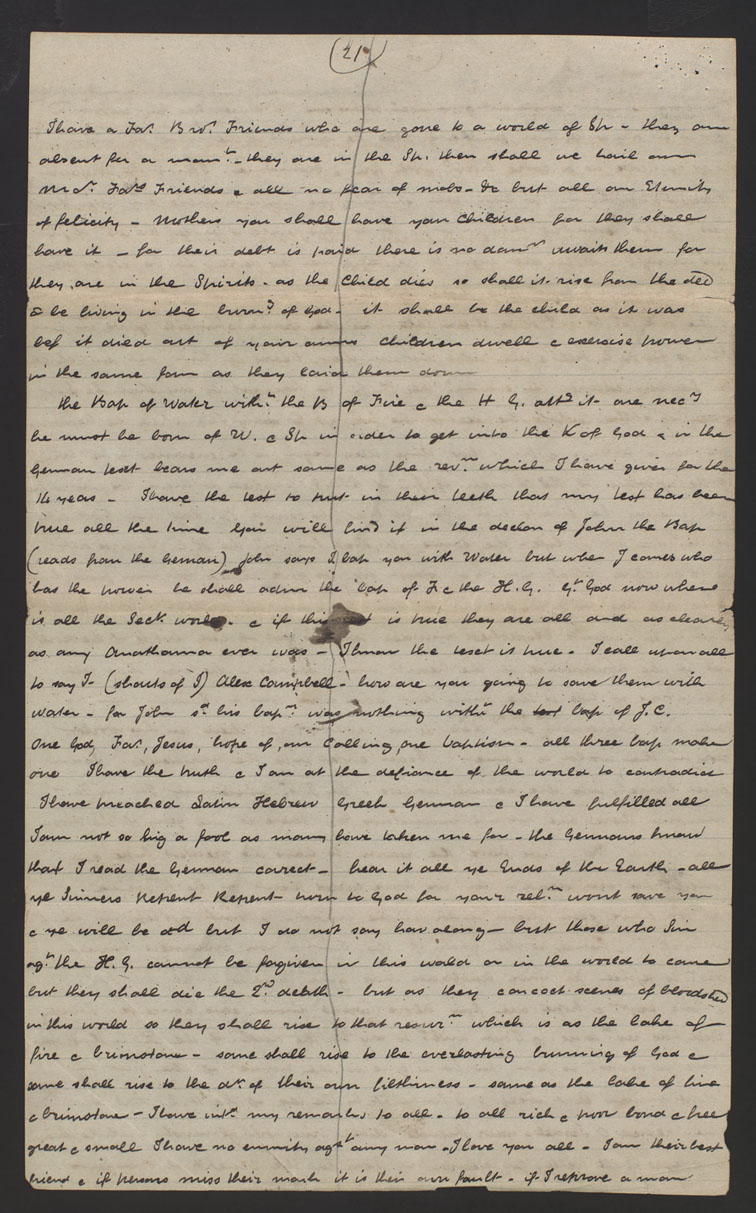 (21)
I have a Far. Bror. Friends who are gone to a world of Sp - they are
absent for a momt. - they are in the Sp. then shall we hail our
Mors. Fars Friends & all no fear of mobs - &c but all an Eternity
of felicity - Mothers you shall have your Children for they shall
have it - for their debt is paid there is no damn awaits them for
they are in the Spirits - as the Child dies so shall it rise from the ded
& be living in the burng. of God - it shall be the child as it was
bef it died out of your arms Children dwell & exercise power
in the same form as they laid them down
The Bap of Water witht. the B of Fire & the H G. attg it - are necy
he must be born of W. & Sp in order to get into the K of God & in the
German text bears me out same as the revns which I have given for the
14 years - I have the test to put in their teeth that my test has been
true all the time You will find it in the declon of John the Bap
(reads from the German) John says I bap you with Water but when J comes who
has the power he shall admr the bap of F & the H. G. Gt. God now where
is all the Sect. world. & if this is true they are all and as clearly
as any Anathama ever was - I know the text is true - I call upon all
to say I - (shouts of I) Alex Campbell - how are you going to save them with
water - for John sd. his bapm. was nothing witht the bap of J. C.
One God, Far., Jesus, hope of, our calling, one baptism - all three bap make
one I have the truth & I am at the defiance of the world to contradict
I have preached Latin Hebrew Greek German & I have fulfilled all
I am not so big a fool as many have taken me for - the Germans know
that I read the German correct - hear it all ye Ends of the Earth - all
ye Sinners Repent Repent - turn to God for your reln wont save you
& ye will be dd but I do not say how along - but those who Sin
agt. the H. G. cannot be forgiven in this world or in the world to come
but they shall die the 2nd death - but as they concoct scenes of bloodshed
in this world so they shall rise to that resurn which is as the lake of
fire & brimstone - some shall rise to the everlasting burning of God &
some shall rise to the dn. of their own filthiness - same as the lake of fire
& brimstone - I have intd. my remarks to all - to all rich & poor bond & free
great & small I have no enmity agst any man - I love you all - I am their best
friend & if persons miss their mark it is their own fault - if I reprove a man